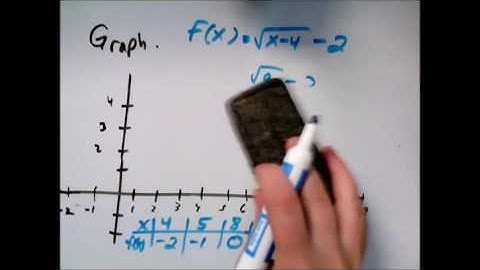 Graph. F(x)=√x-4 - 2
4
3
2
-2 -1 1 2 3 4 5 6
x 4 5 8
f(x) -2 -1 0